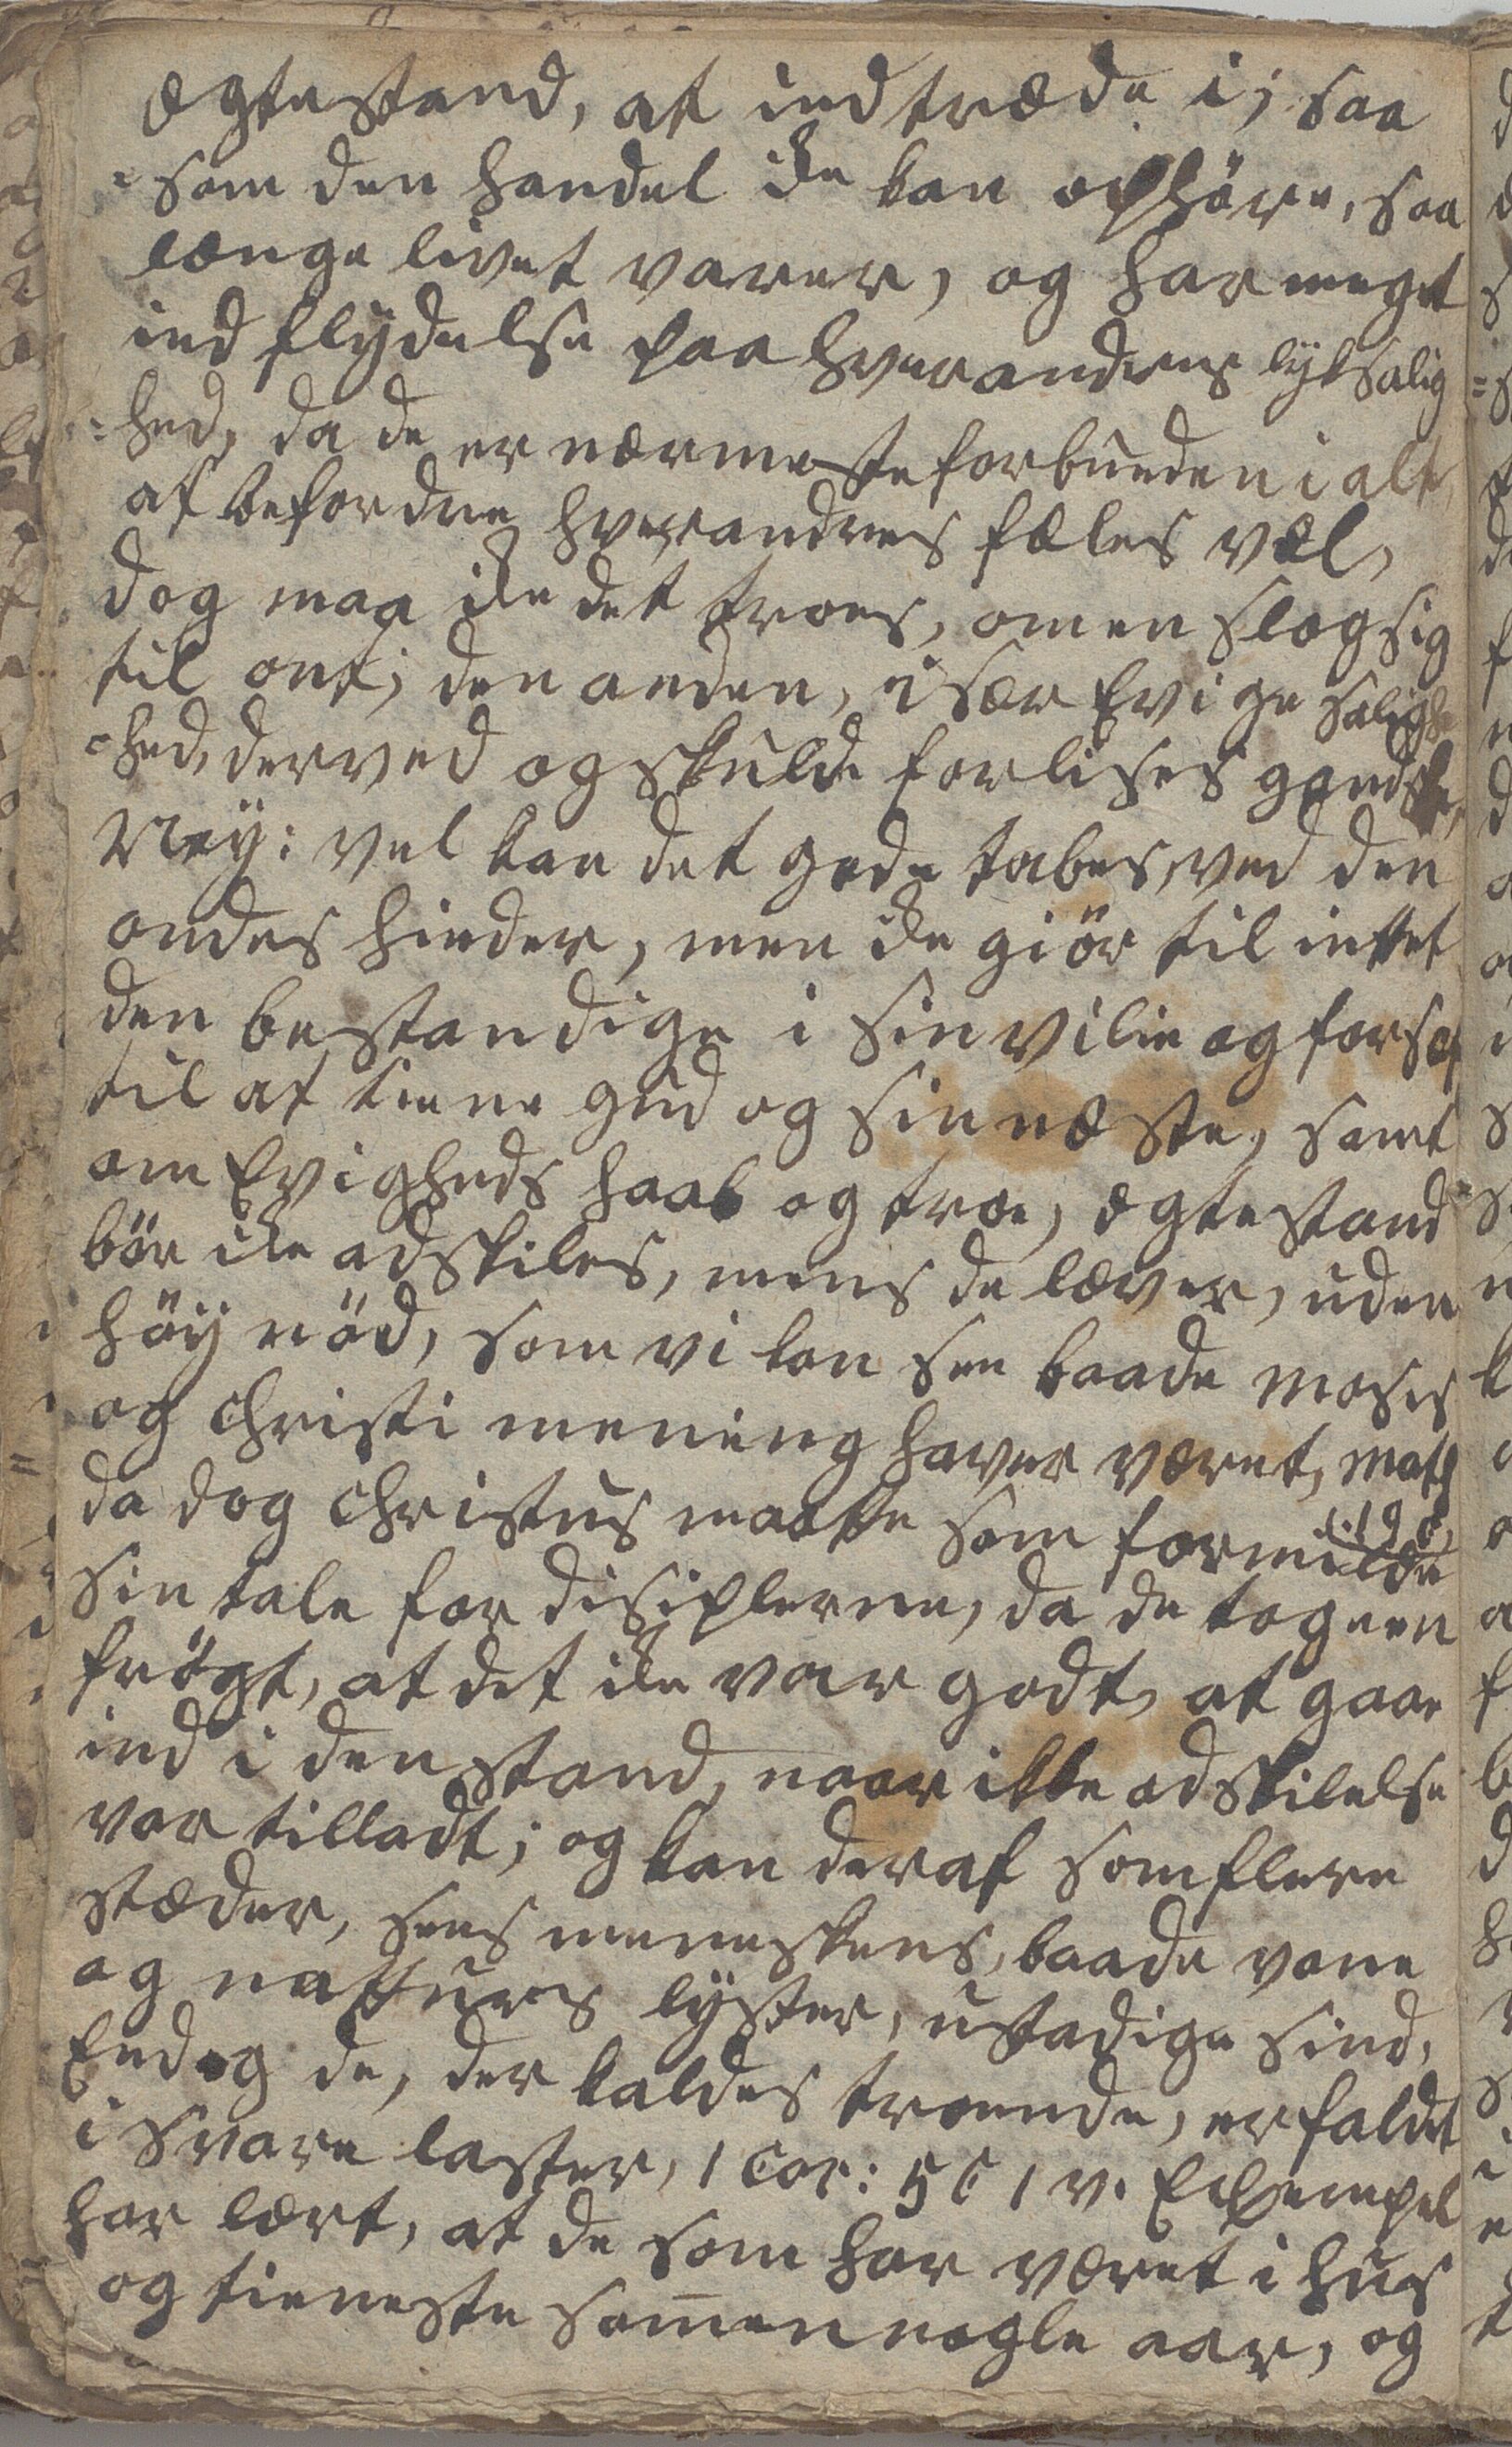 ægtestand, at indtræde i; saa
=som den handel ike kan ophøre, saa
længe livet varer, og har meget
ind flydelse paa hverandres lyksalig
=hed, da de er nærmeste forbunden i alt
at befordre hverandres fæles væl,
dog maa ike det troes, om en slog sig
til ont; den anden, i sær Evige salighe
=hed, derved og skulde forlises gandske,
Ney: vel kan det gode tabes, ved den
ondes hinder, men ike giör til inttet
den bestandige i sin vilie og forsæt
til at tiene gud og sin næste, samt
om Evigheds haab og troe, ægtestand
bör ike adskiles, mens de læver, uden
höy nöd, som vi kan see baade Mosis
og Christi mening haver været, Math
c. 19 d,
da dog Christus maatte som formilde
sin tale for disiplerne, da de tog een
frögt, at det ike var godt, at gaae
ind i den stand, naar ikke adskilelse
var tilladt; og kan deraf som flere
stæder, sees menneskens, baade vane
og natturs lyster, ustadige sind,
Endog de, der kaldes troende, er faldet
i svare laster, 1 Cor: 5 C 1 v. Exsempel
har lært, at de som har været i huus
og tieneste sam̅en nogle aar, og